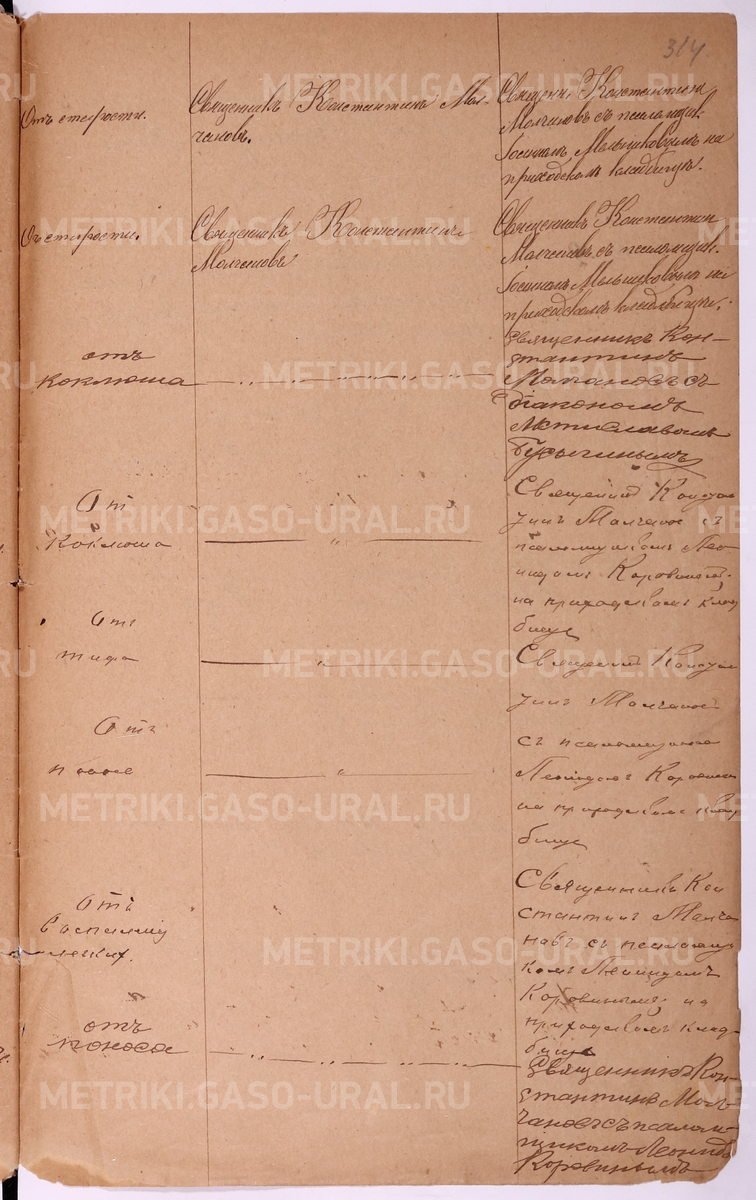 314.
Отъ старости.
Священникъ Константинъ Мол-
чановъ.
Священ. Константинъ
Молчановъ съ псаломщик.
Мельшковымъ на
приходскомъ кладбищѣ.
Отъ старости.
Священникъ Константинъ
Молчановъ
Священникъ Константин
Молчановъ съ псаломщик.
Мельшковымъ на
приходскомъ кладбищѣ.
отъ
коклюша
Священникъ Кон-
стантинъ
Молчановъ съ
діакономъ
Мстиславомъ
Бусыгинымъ
От
коклюша
Священник Констан
тинъ Молчанов съ
псаломщикомъ Лео
нидом Коровиным
на приходскомъ клад
бище
Отъ
тифа
Священник Констан
тинъ Молчанов
съ псаломщиком
Леонидом Коровиным
на приходском клад
бище
Отъ
поноса
Отъ
воспаленія
легких.
Священникъ Кон
стантинъ Молча
новъ съ псаломщи
комъ Леонидомъ
Коровинымъ на
приходскомъ клад-
бище
отъ
поноса
Священникъ Кон-
стантинъ Мол-
чановъ съ псалом-
щикомъ Леонид.
Коровинымъ
METRIKI.GASO-URAL.RU